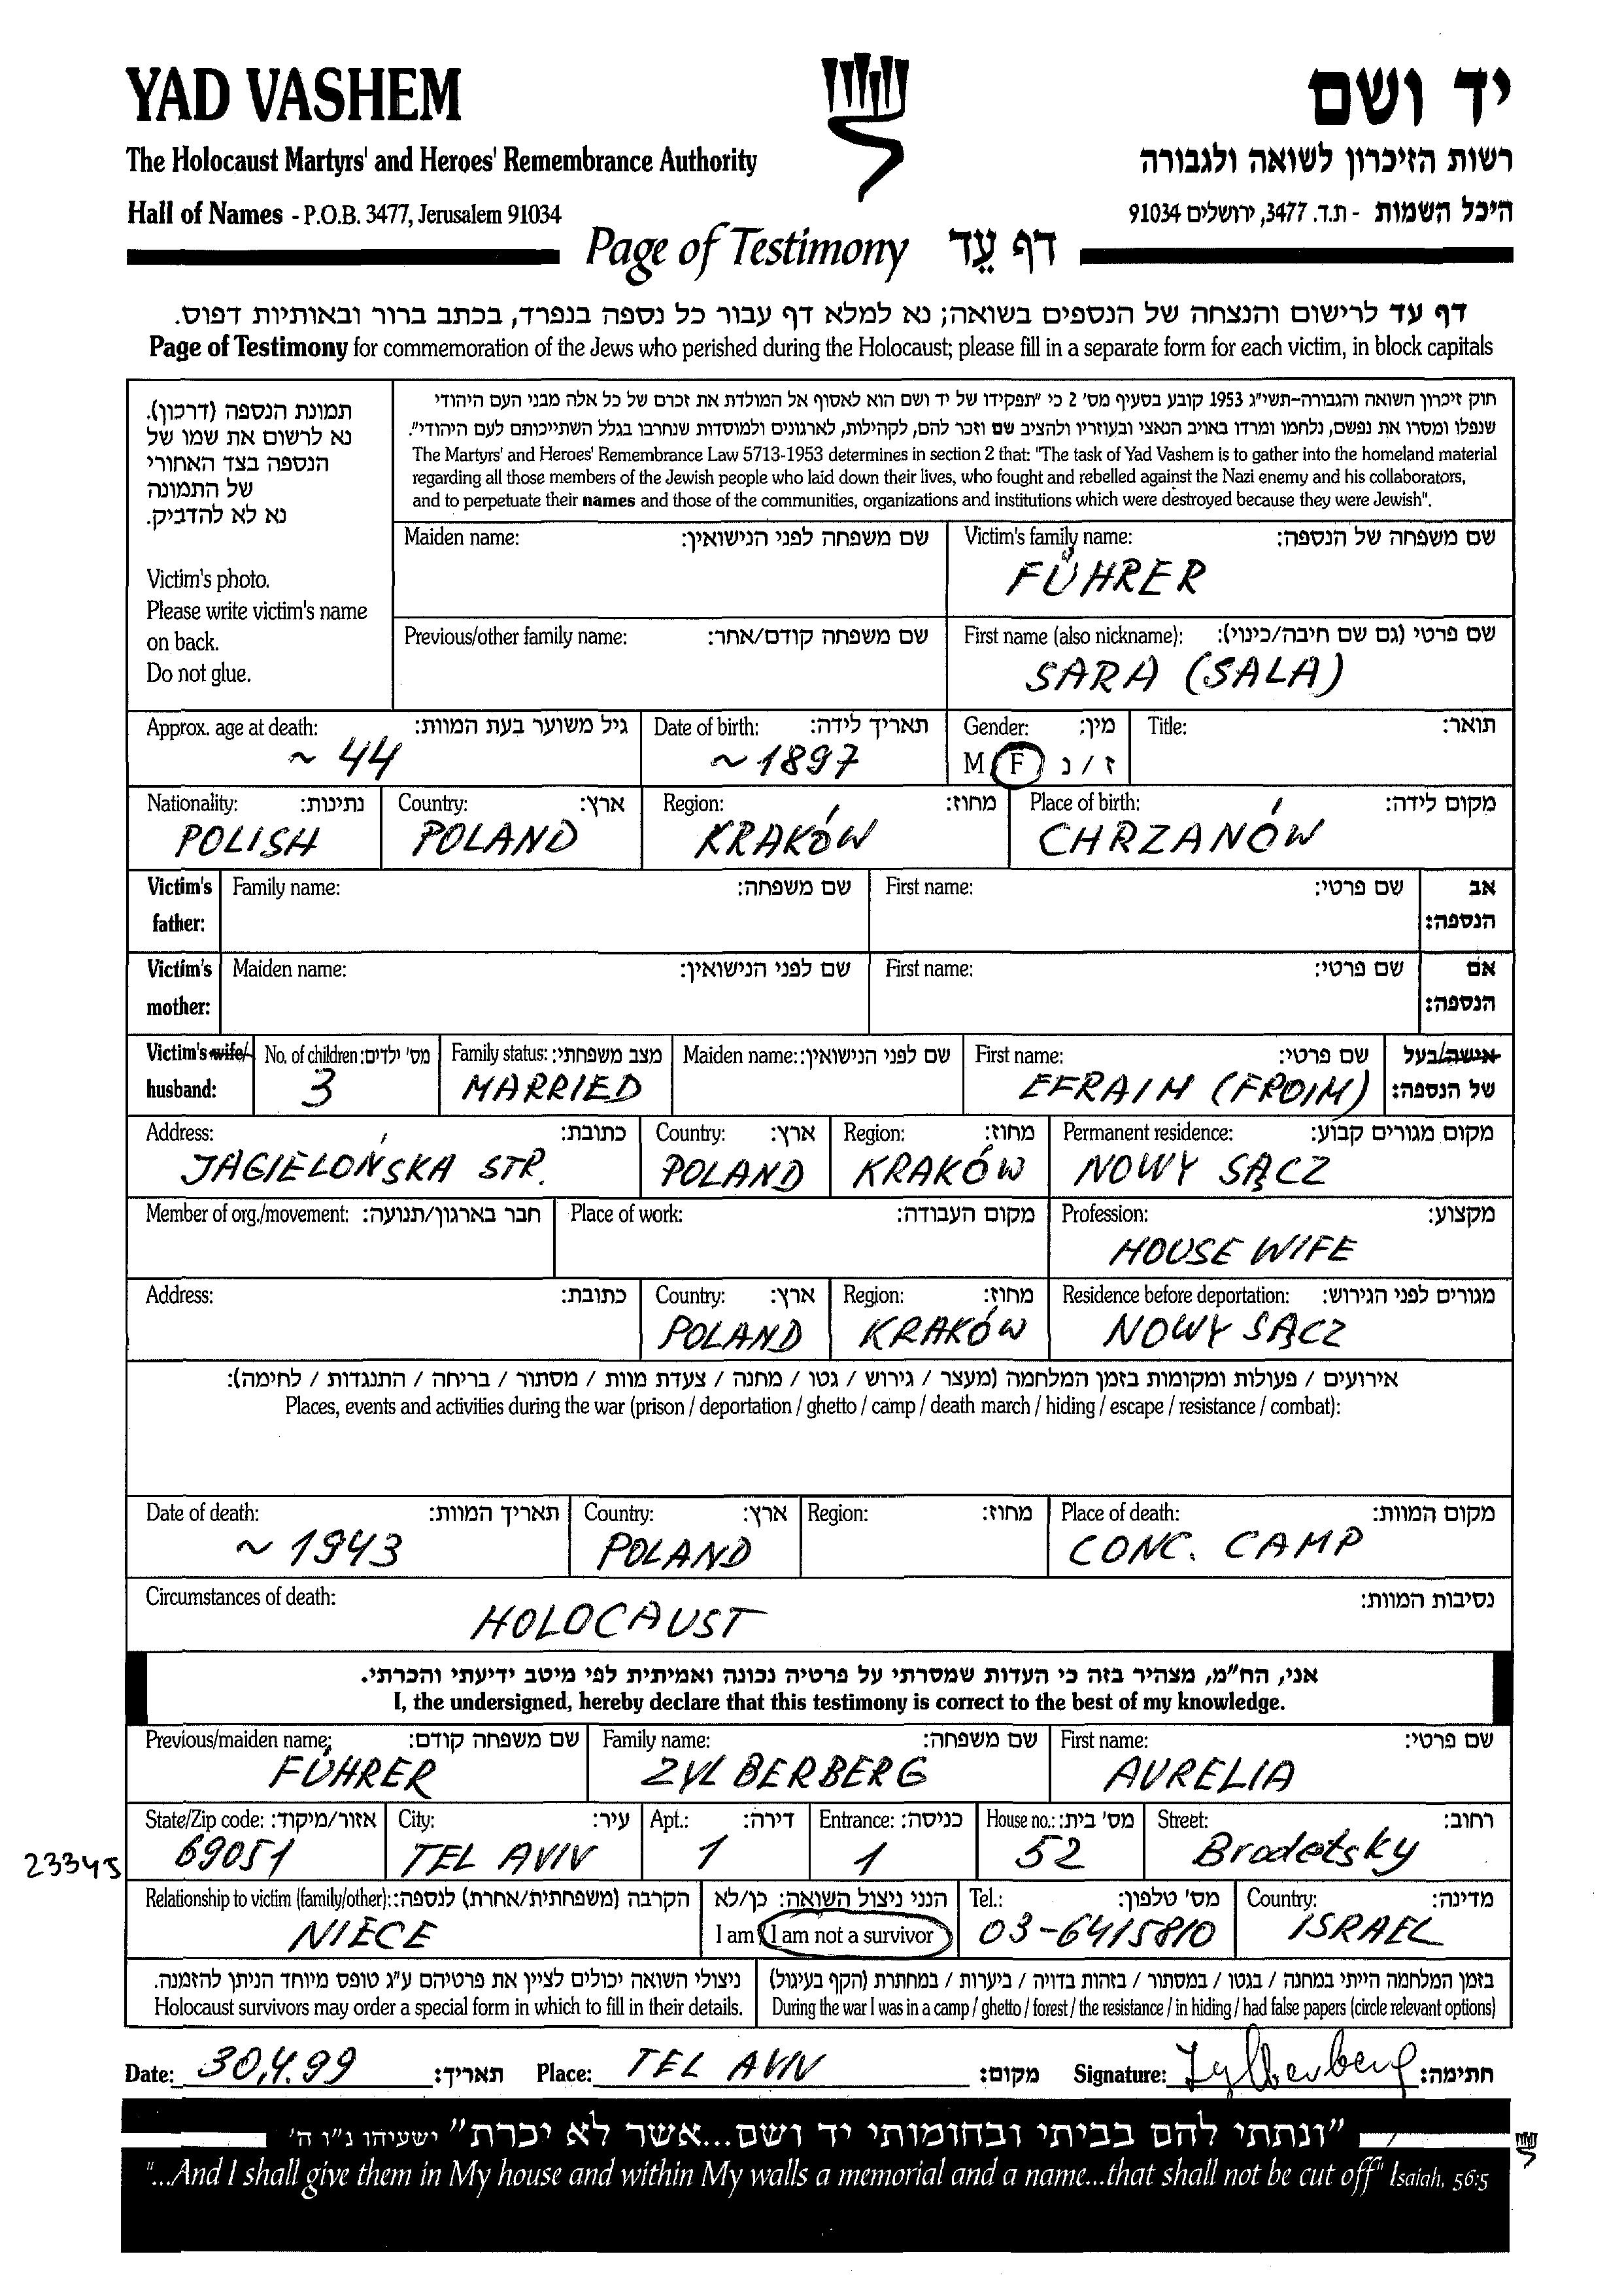 YAD VASHEM
יד ושם
The Holocaust Martyrs' and Heroes' Remembrance Authority
רשות הזיכרון לשואה ולגבורה
Hall of Names - P.O.B. 3477, Jerusalem 91034
היכל השמות - ת.ד. 3477, ירושלים 91034
Page of Testimony דף עֵד
דף עד לרישום והנצחה של הנספים בשואה; נא למלא דף עבור כל נספה בנפרד, בכתב ברור ובאותיות דפוס.
Page of Testimony for commemoration of the Jews who perished during the Holocaust; please fill in a separate form for each victim, in block capitals
תמונת הנספה (דרכון).
נא לרשום את שמו של
הנספה בצד האחורי
של התמונה
נא לא להדביק.
Victim's photo.
Please write victim's name
on back.
Do not glue.
חוק זיכרון השואה והגבורה-תשי"ג 1953 קובע בסעיף מס' 2 כי "תפקידו של יד ושם הוא לאסוף אל המולדת את זכרם של כל אלה מבני העם היהודי
שנפלו ומסרו את נפשם, נלחמו ומרדו באויב הנאצי ובעוזריו ולהציב שם וזכר להם, לקהילות, לארגונים ולמוסדות שנחרבו בגלל השתייכותם לעם היהודי".
The Martyrs' and Heroes' Remembrance Law 5713-1953 determines in section 2 that: "The task of Yad Vashem is to gather into the homeland material
regarding all those members of the Jewish people who laid down their lives, who fought and rebelled against the Nazi enemy and his collaborators,
and to perpetuate their names and those of the communities, organizations and institutions which were destroyed because they were Jewish".
Maiden name: שם משפחה לפני הנישואין:
Victim's family name: שם משפחה של הנספה:
FÜHRER
Previous/other family name: שם משפחה קודם/אחר:
First name (also nickname): שם פרטי (גם שם חיבה/כינוי):
SARA (SALA)
Approx. age at death: גיל משוער בעת המוות:
~ 44
Date of birth: תאריך לידה:
~1897
Gender: מין:
M F ז / נ
Title: תואר:
Nationality: נתינות:
POLISH
Country: ארץ:
POLAND
Region: מחוז:
KRAKÓW
Place of birth: מקום לידה:
CHRZANÓW
Victim's father: Family name: שם משפחה: First name: שם פרטי: אב הנספה:
Victim's mother: Maiden name: שם לפני הנישואין: First name: שם פרטי: אם הנספה:
Victim's wife/ husband:
No. of children: מס' ילדים:
3
Family status: מצב משפחתי:
MARRIED
Maiden name: שם לפני הנישואין:
First name: שם פרטי:
EFRAIM (FROIM)
אישה/בעל של הנספה:
Address: כתובת:
JAGIELOŃSKA STR.
Country: ארץ:
POLAND
Region: מחוז:
KRAKÓW
Permanent residence: מקום מגורים קבוע:
NOWY SĄCZ
Member of org./movement: חבר בארגון/תנועה:
Place of work: מקום העבודה:
Profession: מקצוע:
HOUSE WIFE
Address: כתובת:
Country: ארץ:
POLAND
Region: מחוז:
KRAKÓW
Residence before deportation: מגורים לפני הגירוש:
NOWY SĄCZ
אירועים / פעולות ומקומות בזמן המלחמה (מעצר / גירוש / גטו / מחנה / צעדת מוות / מסתור / בריחה / התנגדות / לחימה):
Places, events and activities during the war (prison / deportation / ghetto / camp / death march / hiding / escape / resistance / combat):
Date of death: תאריך המוות:
~ 1943
Country: ארץ:
POLAND
Region: מחוז:
Place of death: מקום המוות:
CONC. CAMP
Circumstances of death: נסיבות המוות:
HOLOCAUST
אני, הח"מ, מצהיר בזה כי העדות שמסרתי על פרטיה נכונה ואמיתית לפי מיטב ידיעתי והכרתי.
I, the undersigned, hereby declare that this testimony is correct to the best of my knowledge.
Previous/maiden name: שם משפחה קודם:
FÜHRER
Family name: שם משפחה:
ZYLBERBERG
First name: שם פרטי:
AURELIA
State/Zip code: אזור/מיקוד:
69051
23345
City: עיר:
TEL AVIV
Apt.: דירה:
1
Entrance: כניסה:
1
House no.: מס' בית:
52
Street: רחוב:
Brodetsky
Relationship to victim (family/other): הקרבה (משפחתית/אחרת) לנספה:
NIECE
הנני ניצול השואה: כן/לא
I am / I am not a survivor
Tel.: מס' טלפון:
03-6415810
Country: מדינה:
ISRAEL
ניצולי השואה יכולים לציין את פרטיהם ע"ג טופס מיוחד הניתן להזמנה.
Holocaust survivors may order a special form in which to fill in their details.
בזמן המלחמה הייתי במחנה / בגטו / במסתור / בזהות בדויה / ביערות / במחתרת (הקף בעיגול)
During the war I was in a camp / ghetto / forest / the resistance / in hiding / had false papers (circle relevant options)
Date: 30.4.99 תאריך: Place: TEL AVIV מקום: Signature: Zylberberg חתימה:
"ונתתי להם בביתי ובחומותי יד ושם...אשר לא יכרת" ישעיהו נ"ו ה'
"...And I shall give them in My house and within My walls a memorial and a name...that shall not be cut off" Isaiah, 56:5